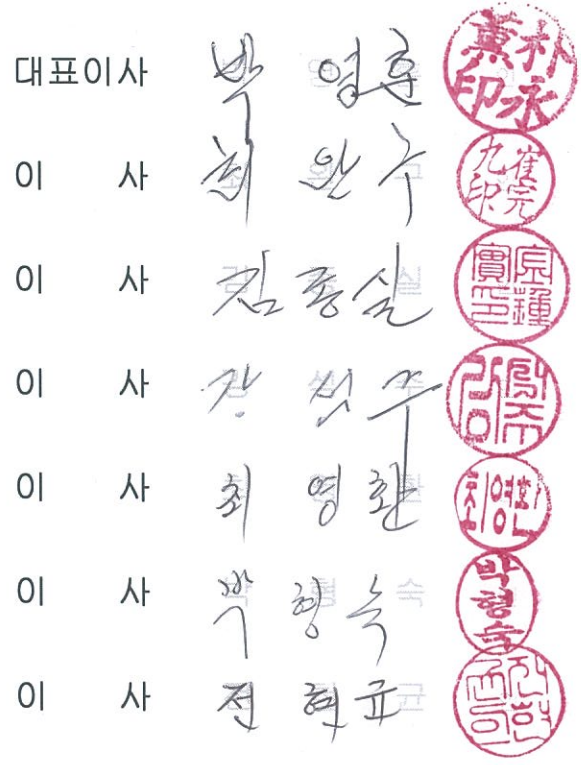 대표이사 박 영 훈 朴永薰印
이 사 최 완 구 崔完九印
이 사 김 종 실 金鍾實印
이 사 석 주
이 사 최 영 환 최영환
이 사 박 형 숙 박형숙
이 사 전 균